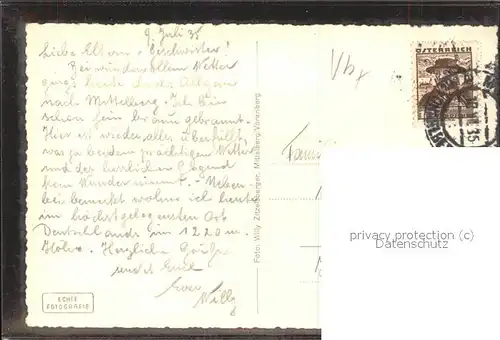 9. Juli 35
Liebe Eltern u. Geschwister!
Bei wundervollem Wetter
ging's heute durch das Allgäu
nach Mittelberg. Ich bin
schon fein braun gebrannt.
Hier ist wieder alles überfüllt,
was ja bei dem prächtigen Wetter
und der herrlichen Gegend
kein Wunder nimmt. - Neben-
bei bemerkt wohne ich heute
im höchstgelegensten Ort
Deutschlands im 1220 m.
Höhe. Herzliche Grüße
und Euch
Euer
Willy
ECHTE
FOTOGRAFIE
Foto: Willy Zitzelsberger, Mittelberg/Vorarlberg
Vbg
ÖSTERREICH
35
Famili
privacy protection (c)
Datenschutz